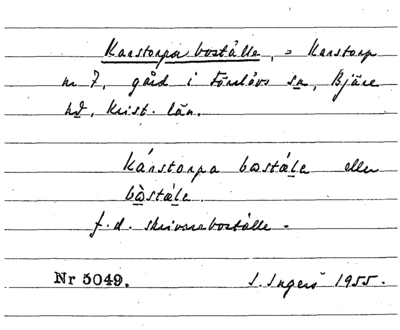 Karstorpa boställe, = Karstorp
nr 7, gård i Förslövs sn, Bjäre
hd, Krist. län.
kárstorpa bostäle eller
bòstäle
f.d. skrivareboställe.
Nr 5049. I. Ingers 1955.